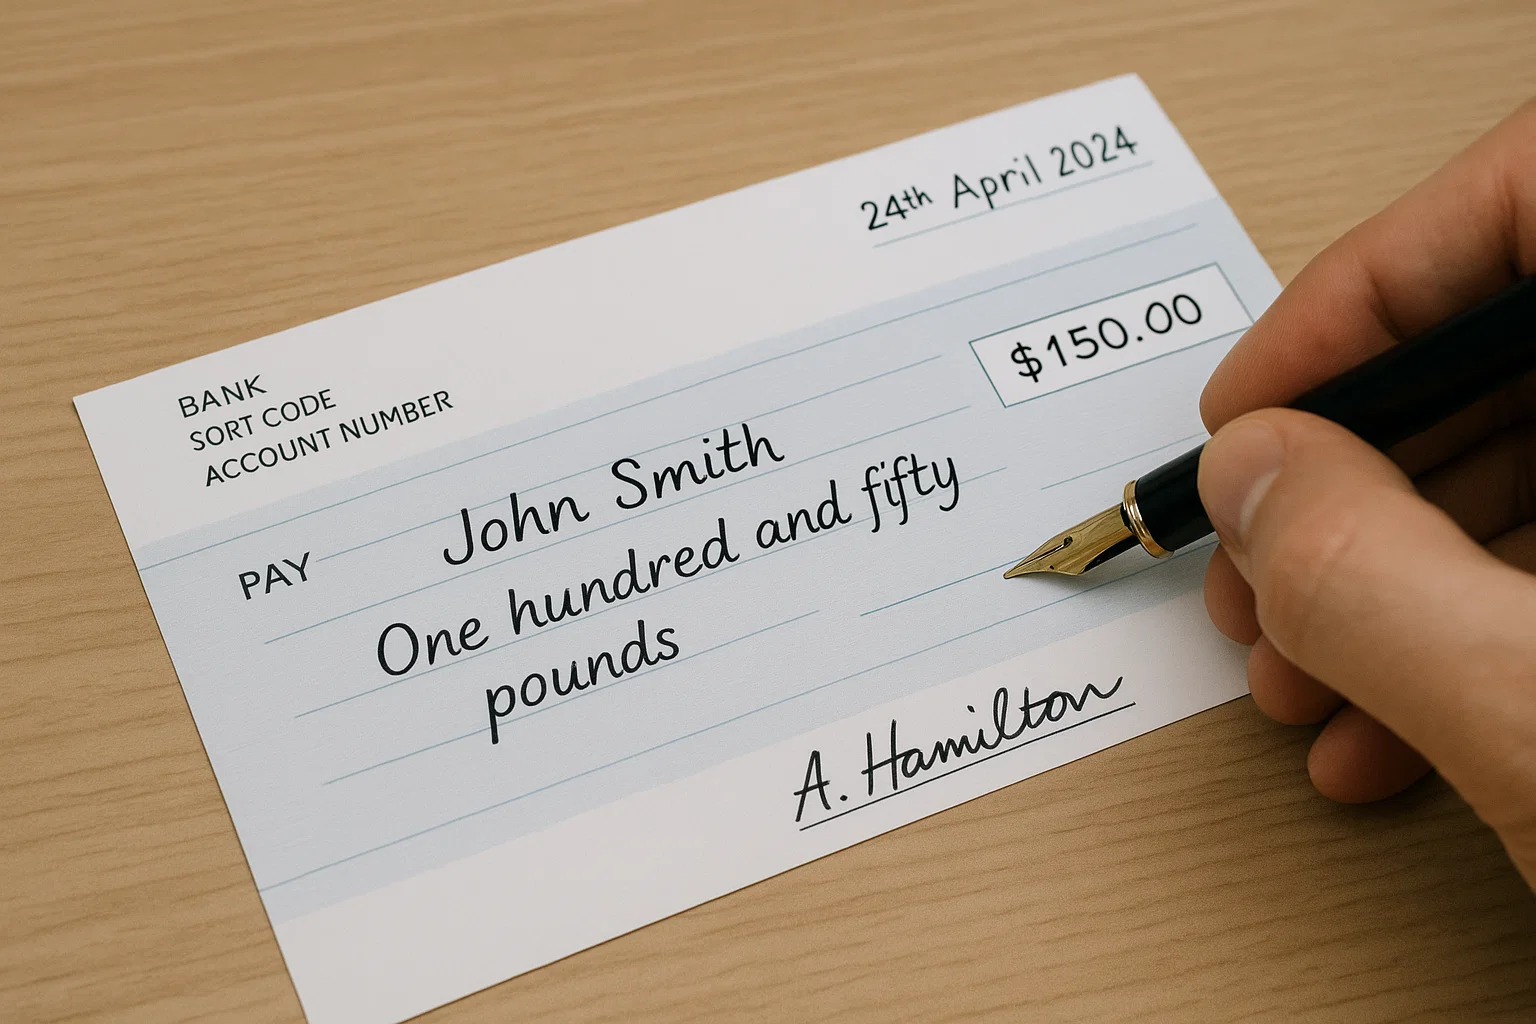 24th April 2024
$150.00
BANK
SORT CODE
ACCOUNT NUMBER
PAY John Smith
One hundred and fifty
pounds
A. Hamilton